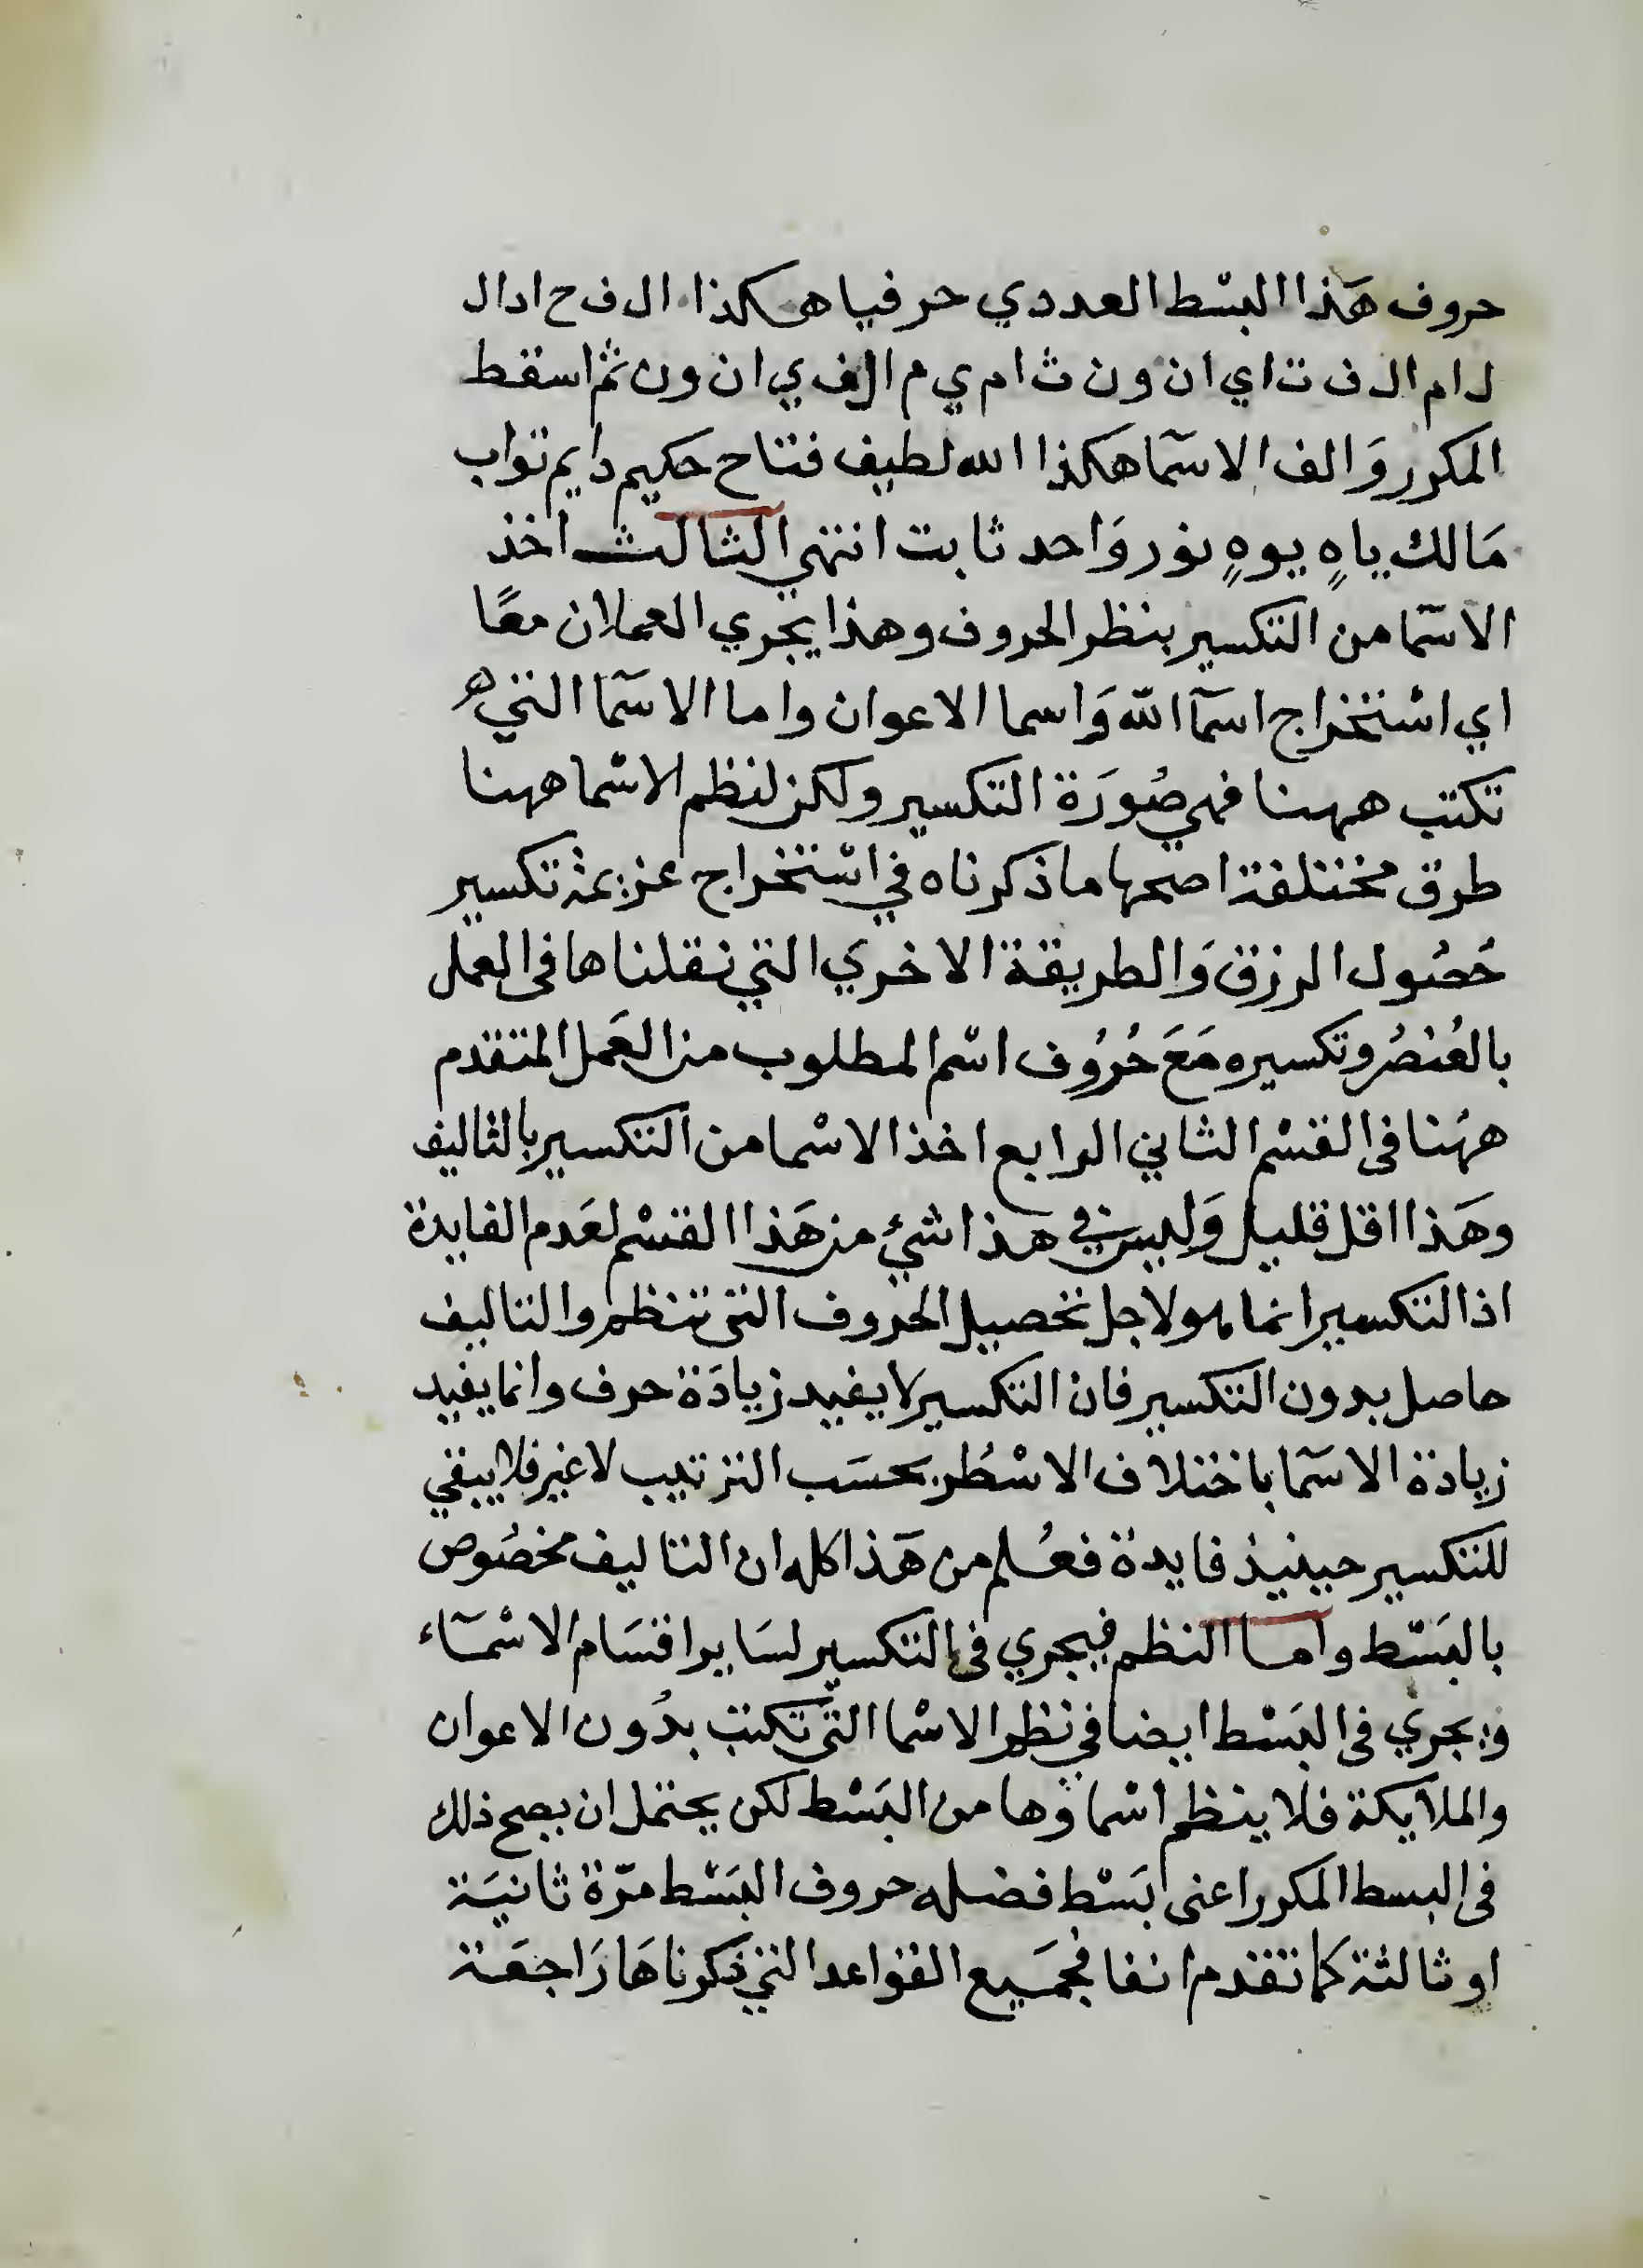 حروف هَذا البسْط العددي حرفيا هكذا ال ف ح ا د ا ل
ل ا م ا ل ف ت ا ي ا ن و ن ث ا م ي م ا ل ف ي ا ن و ن ثم اسقط
المكرر وَالف الاسمآ هكذا الله لطيف فتاح حكيم دايم تواب
مَالك ياهٍ يوهٍ نور وَاحد ثابت انتهي الثالث اخذ
الاسمآ من التكسير بنظر الحروف وهذا يجري العملان معًا
اي اسْتخراج اسمآ اللّه وَاسما الاعوان واما الاسمآ التي هـ
تكتب ههنا فهي صُورَة التكسير ولكن لنظم الاسْما ههنا
طرق مختلفة اصحها ما ذكرناه في اسْتخراج عزيمة تكسير
حُصُول الرزق وَالطريقة الاخري التي نقلناها فى العمل
بالعُنصُر وتكسيره مَعَ حُرُوف اسْم المطلوب من العَمل المتقدم
ههُنا فى القسْم الثاني الرابع اخذ الاسْما من التكسير بالتاليف
وهَذا اقل قليل وَليس في هذا شيُ من هَذا القسْم لعَدم الفايدة
اذ التكسير انما هو لاجل تحصيل الحروف التى تنظم والتاليف
حاصل بدون التكسير فان التكسير لا يفيد زيادَة حرف وانما يفيد
زيادة الاسمآ باختلاف الاسْطُر بحسَب الترتيب لا غير فلا يبقي
للتكسير حينيذ فايدة فعُلم من هَذا كله ان التاليف مخصُوص
بالبَسْط واما النظم فيجري فى التكسير لسَاير اقسَام الاسْمآء
ويجري فى البَسْط ايضا في نظم الاسْما التى تكتب بدُون الاعوان
والملايكة فلا ينظم اسْماوها من البَسْط لكن يحتمل ان يصح ذلك
فى البسط المكرر اعنى بَسْط فضله حروف البَسْط مرّة ثانيَة
او ثالثة كما تقدم انفا فجمَيع القواعد التي ذكرناهَا رَاجعَة